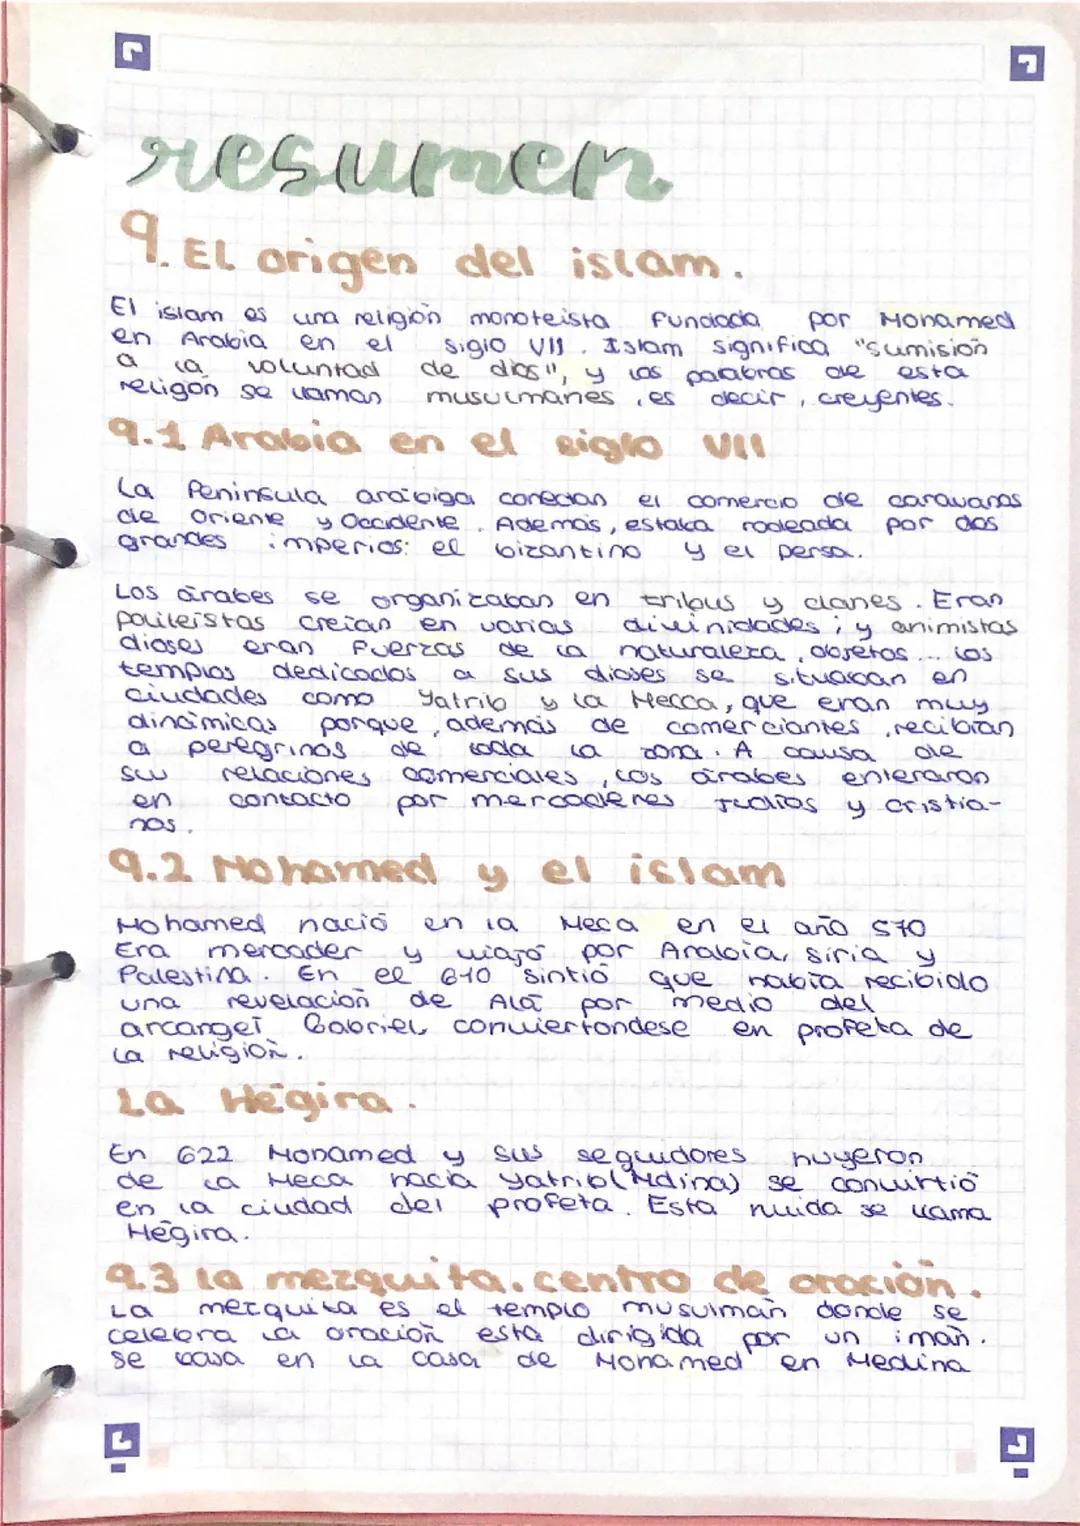 resumen
9. EL origen del islam.
El islam es una religión monoteista fundada por Mohamed
en Arabia en el siglo VII. Islam significa "sumisión
a la voluntad de dios", y las palabras de esta
religón se llaman musulmanes, es decir, creyentes.
9.1 Arabia en el siglo VII
La Península arábiga conectan el comercio de caravanas
de Oriente y Occidente. Además, estaba rodeada por dos
grandes imperios: el bizantino y el persa.
Los árabes se organizaban en tribus y clanes. Eran
politeistas creían en varias divinidades; y animistas
dioses eran fuerzas de la naturaleza, objetos... los
templos dedicados a sus dioses se situaban en
ciudades como Yatrib y la Mecca, que eran muy
dinámicas porque, además de comerciantes, recibían
a peregrinos de toda la zona. A causa de
sus relaciones comerciales, los árabes enteraron
en contacto por mercaderes judíos y cristia-
nos.
9.2 Mohamed y el islam
Mohamed nació en la Meca en el año 570
Era mercader y viajó por Arabia, siria y
Palestina. En el 610 sintió que había recibido
una revelación de Alá por medio del
arcangel Gabriel conviertondese en profeta de
la religión.
La Hégira.
En 622 Mohamed y sus seguidores huyeron
de la Meca hacia Yatrib (Mdina) se convirtió
en la ciudad del profeta. Esta huida se llama
Hégira.
9.3 la mezquita. centro de oración.
La mezquita es el templo musulmán donde se
celebra la oración está dirigida por un imán.
Se basa en la casa de Mohamed en Medina